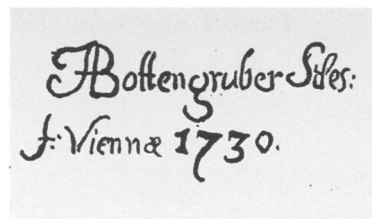 JABottengruber Siles:
f: Viennæ 1730.